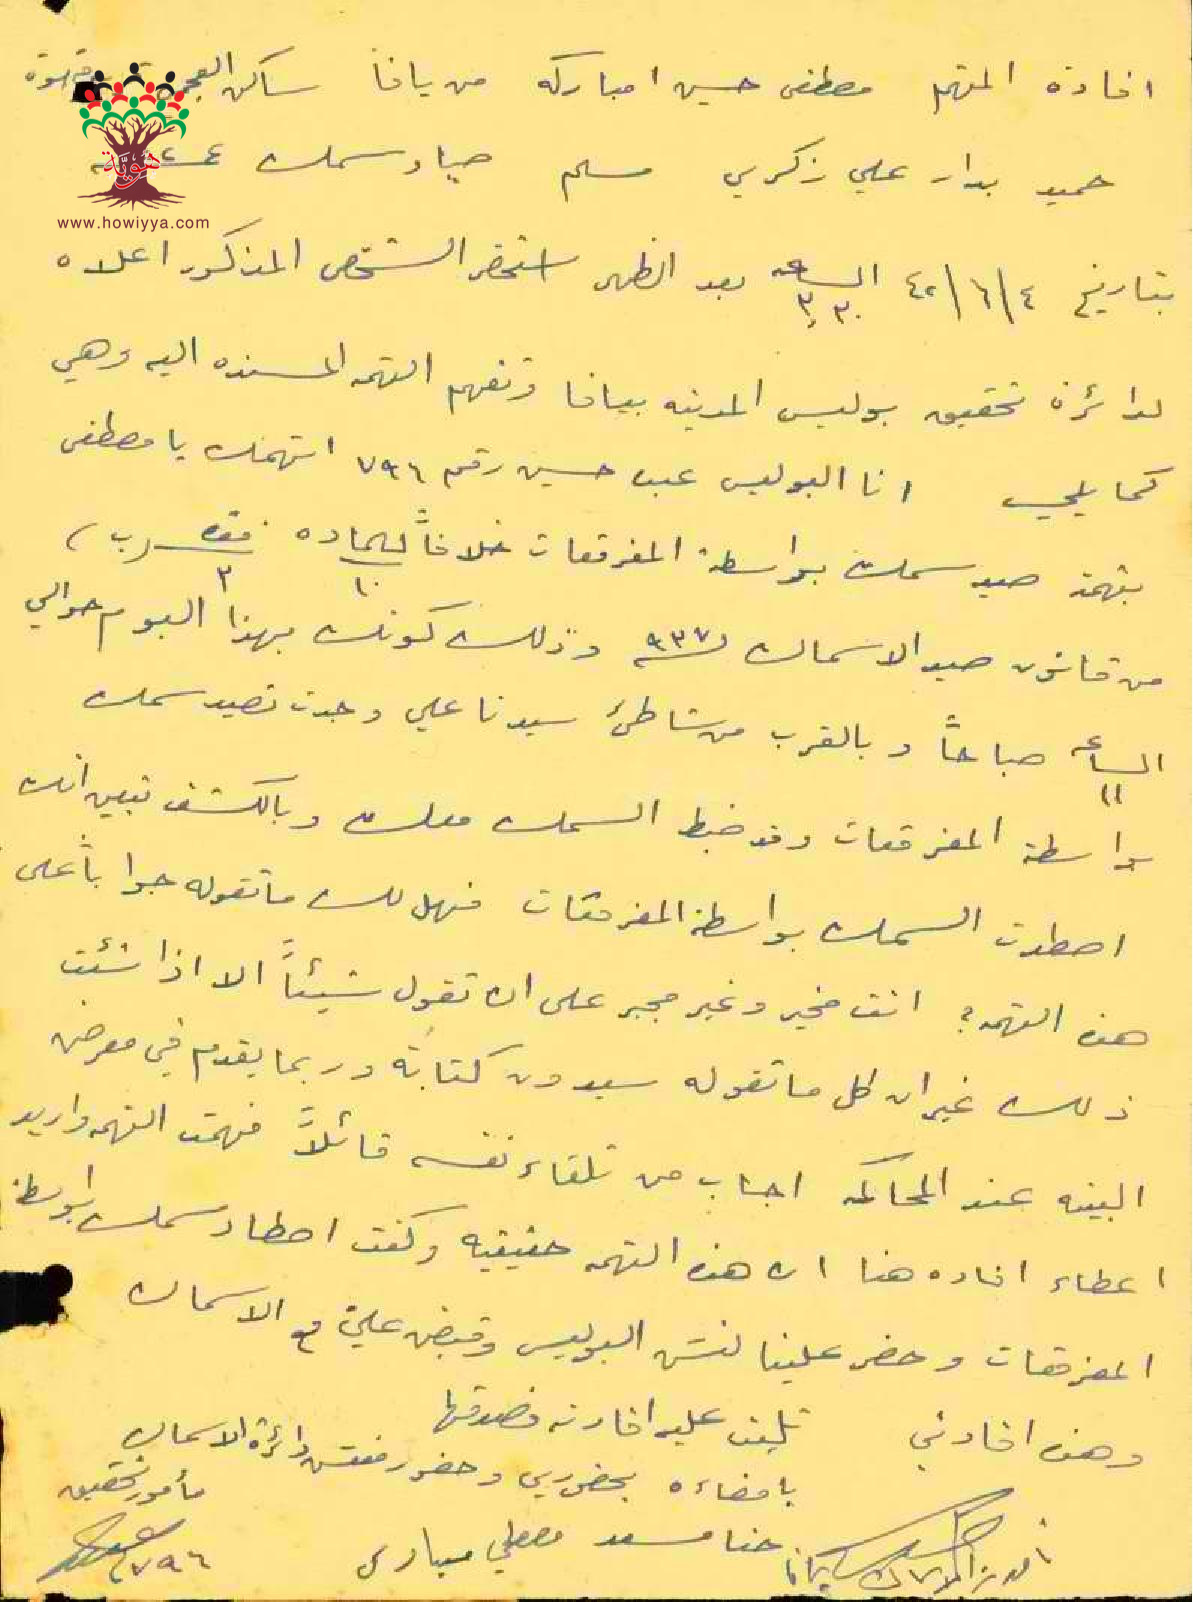 افادة المتهم مصطفى حسين امباركه من يافا ساكن العجمي قهوة
هويّة
www.howiyya.com
حميد بدار علي زكري مسلم صياد سمك
بتاريخ ٤/٦/٤٢ الساعه ٣,٣٠ بعد الظهر استحضر الشخص المذكور اعلاه
لدائرة تحقيق بوليس المدينه بيافا وتفهم التهمه المسنده اليه وهي
كما يلي انا البوليس عبد حسين رقم ٧٩٦ اتهمك يا مصطفى
بتهمة صيد سمك بواسطة المفرقعات خلافاً للماده ١٠ فقره ٢ (ب)
من قانون صيد الاسماك لسنة ٩٣٧ وذلك كونك بهذا اليوم حوالي
الساعه ١١ صباحاً و بالقرب من شاطئ سيدنا علي وجدت تصيد سمك
بواسطة المفرقعات وقد ضبط السمك معك وبالكشف تبين انك
اصطدت السمك بواسطة المفرقعات فهل لك ما تقوله جواباً على
هذه التهمه؟ انت مخير وغير مجبر على ان تقول شيئاً الا اذا شئت
ذلك غير ان كل ما تقوله سيدون كتابة وربما يقدم في معرض
البينه عند المحاكمه اجاب من تلقاء نفسه قائلاً فهمت التهمه واريد
اعطاء افاده هنا ان هذه التهمه حقيقيه وكنت اصطاد سمك بواسطة
المفرقعات وحضر علينا لنش البوليس وقبض علي مع الاسماك
وهذه افادتي تليت عليه افادته فصدقها
بامضاءه بحضوري وحضور مفتش دائرة الاسماك
حنا مسعد مصطفى مبارك مأمور تحقيق
٧٩٦